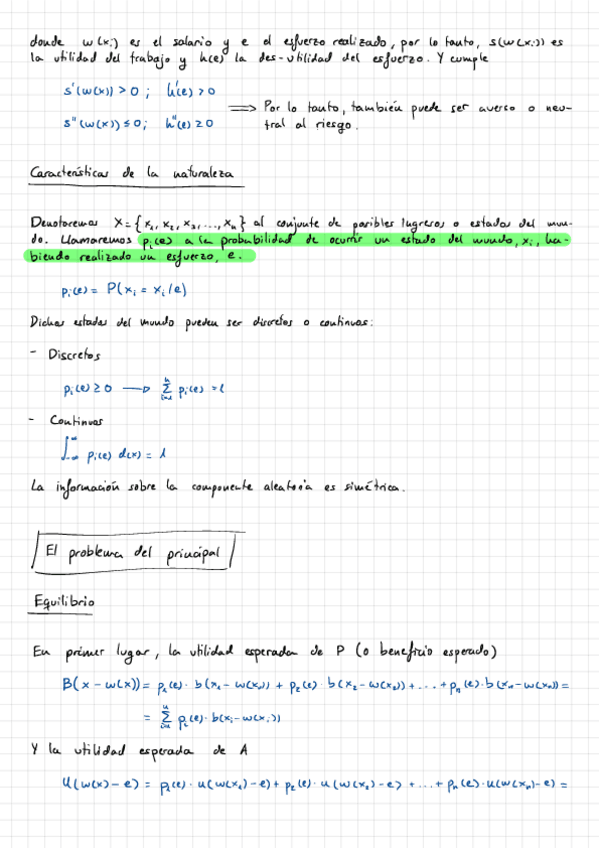 donde w(xi) es el salario y e el esfuerzo realizado, por lo tanto, s(w(xi)) es
la utilidad del trabajo y h(e) la des-utilidad del esfuerzo. Y cumple
s'(w(x)) > 0 ; h'(e) > 0
⟹ Por lo tanto, también puede ser averso o neu-
s''(w(x)) ≤ 0; h''(e) ≥ 0
tral al riesgo.
Características de la naturaleza
Denotaremos X = {x₁, x₂, x₃, ..., xₙ} al conjunto de posibles ingresos o estados del mun-
do. Llamaremos pᵢ(e) a la probabilidad de ocurrir un estado del mundo, xᵢ, ha-
biendo realizado un esfuerzo, e.
pᵢ(e) = P(xᵢ = xᵢ/e)
Dichos estados del mundo pueden ser discretos o continuos:
- Discretos
pᵢ(e) ≥ 0 → ∑ⁿᵢ₌₁ pᵢ(e) = 1
- Continuos
∫₋∞^∞ pᵢ(e) d(x) = 1
La información sobre la componente aleatoria es simétrica.
El problema del principal
Equilibrio
En primer lugar, la utilidad esperada de P (o beneficio esperado)
B(x - w(x)) = p₁(e) · b(x₁ - w(x₁)) + p₂(e) · b(x₂ - w(x₂)) + ... + pₙ(e) · b(xₙ - w(xₙ)) =
= ∑ⁿᵢ₌₁ pᵢ(e) · b(xᵢ - w(xᵢ))
Y la utilidad esperada de A
U(w(x) - e) = p₁(e) · u(w(x₁) - e) + p₂(e) · u(w(x₂) - e) + ... + pₙ(e) · u(w(xₙ) - e) =